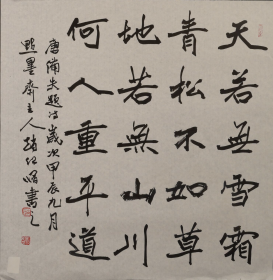 天若無雪霜
青松不如草
地若無山川
何人重平道
唐備失題詩歲次甲辰九月
點墨齋主人 書